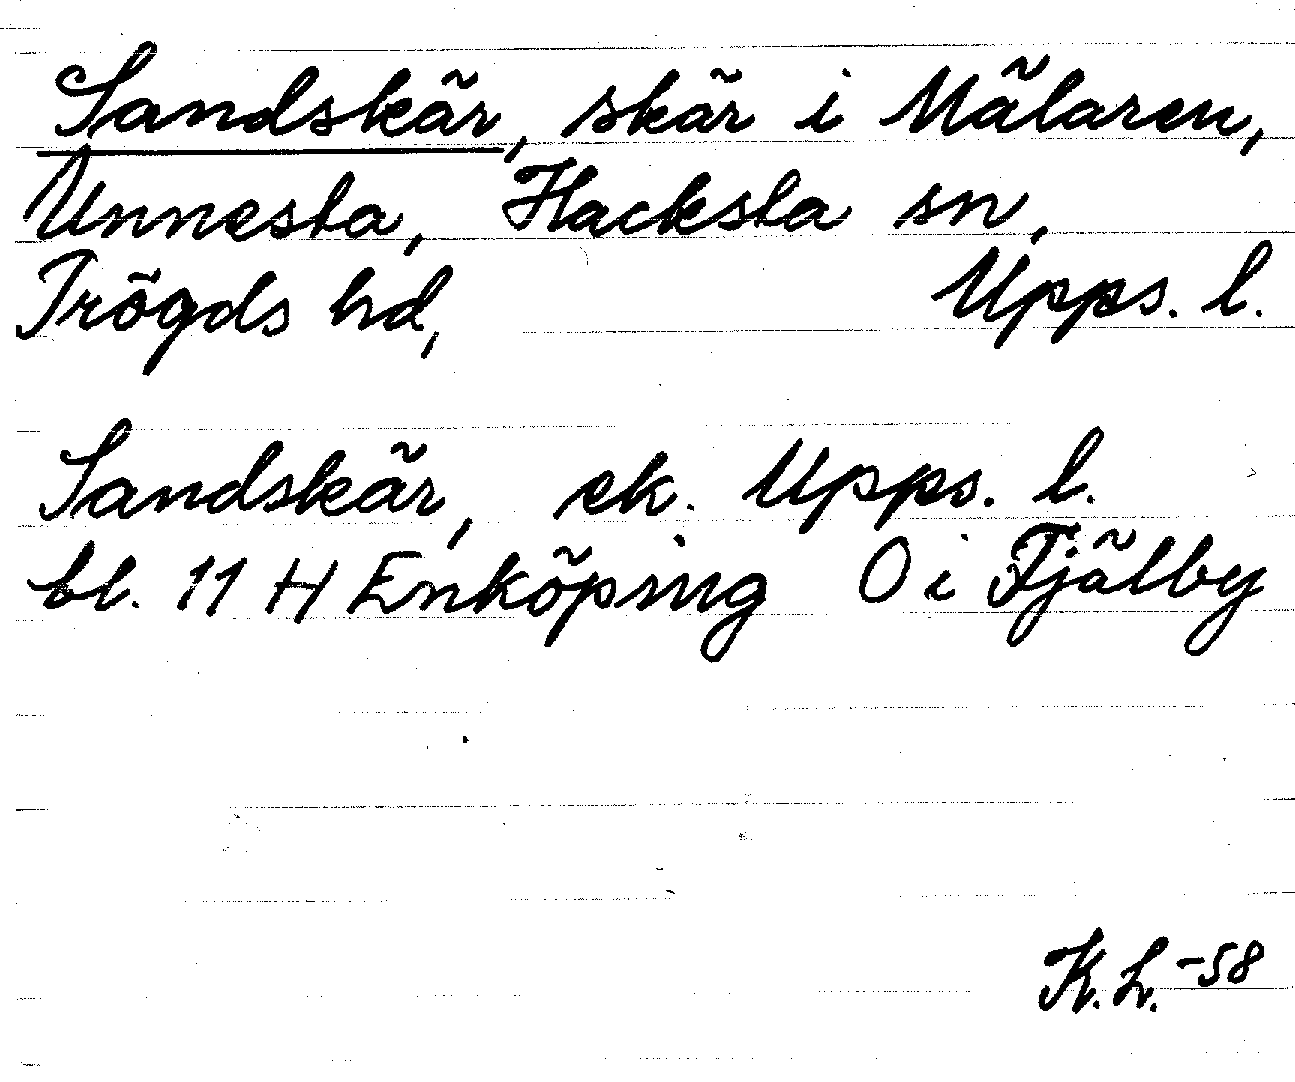 Sandskär, skär i Mälaren,
Unnesta, Hacksta sn,
Trögds hd, Upps. l.
Sandskär, ek. Upps. l.
bl. 11 H Enköping O i Fjälby
K. L. -58